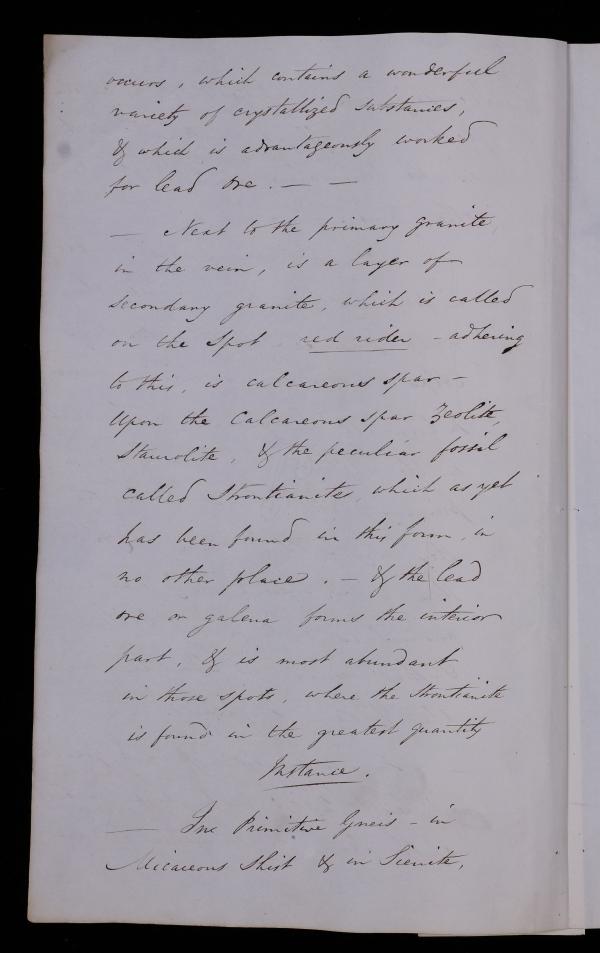 occurs, which contains a wonderful
variety of crystallized substances,
& which is advantageously worked
for lead ore. — —
— Next to the primary granite
in the vein, is a layer of
secondary granite, which is called
on the spot red rider - adhering
to this, is calcareous spar -
Upon the Calcareous spar Zeolite,
Staurolite, & the peculiar fossil
called Strontianite, which as yet
has been found in this form, in
no other place. — & the lead
ore or galena forms the interior
part, & is most abundant
in those spots, where the Strontianite
is found in the greatest quantity
Instance.
— Primitive Gneis - in
Micaceous Shist & in Sienite,